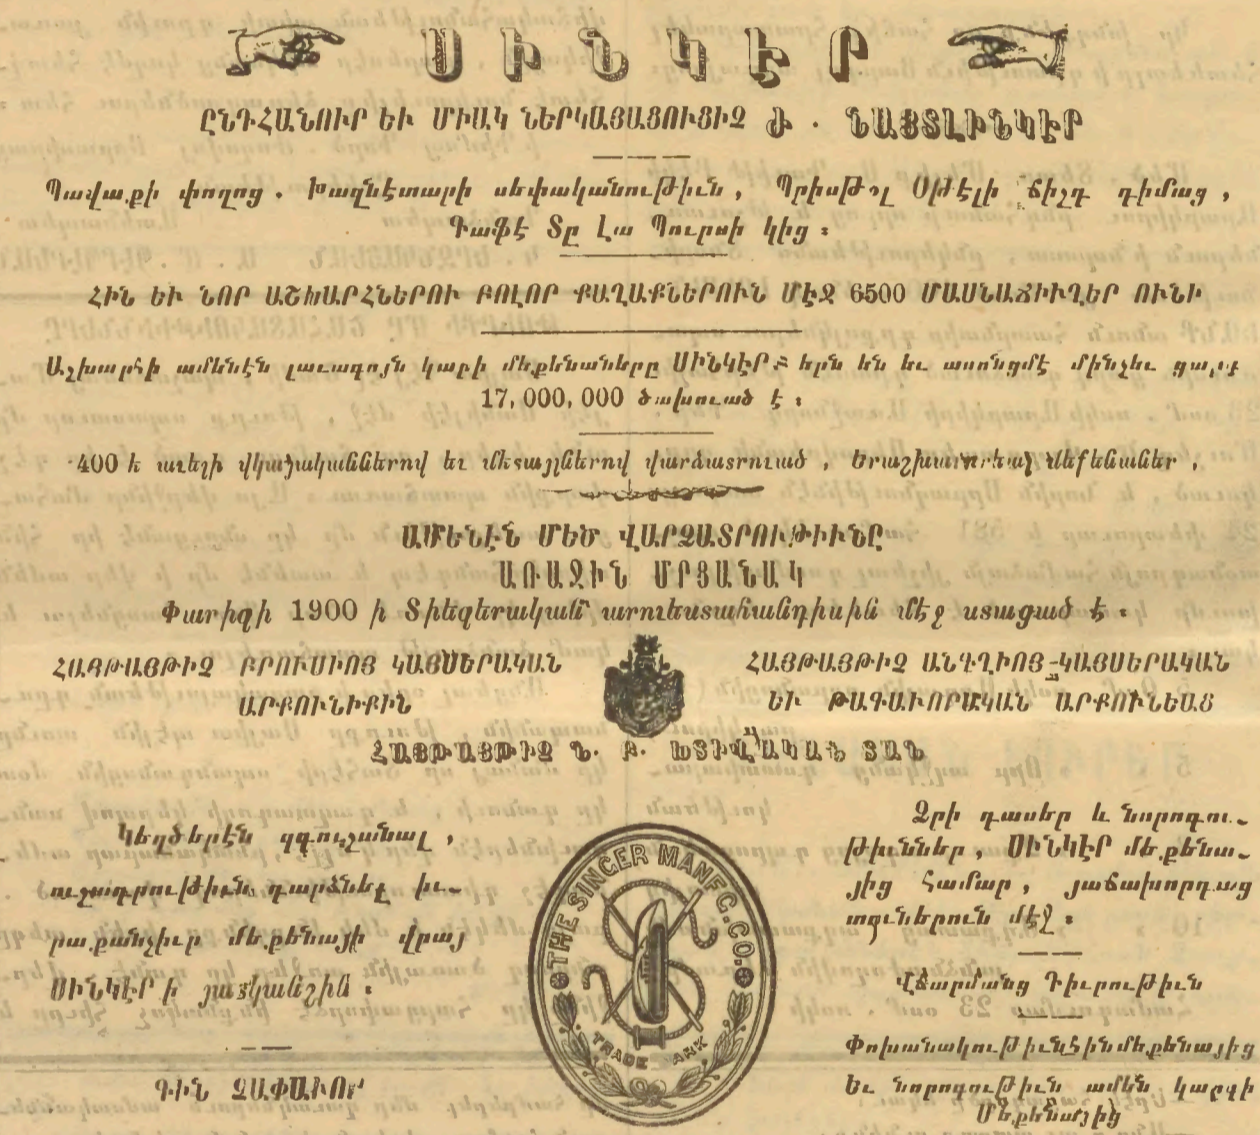 ՍԻՆԿԷՐ
ԸՆԴՀԱՆՈՒՐ ԵՒ ՄԻԱԿ ՆԵՐԿԱՅԱՑՈՒՑԻՉ Ժ. ՆԱՅՏԼԻՆԿԷՐ
Պավաքի փողոց. Խազնէտարի սեփականութիւն, Պրիսթօլ Օթէլի ճիշդ դիմաց,
Գաֆէ Տը Լա Պուրսի կից:
ՀԻՆ ԵՒ ՆՈՐ ԱՇԽԱՐՀՆԵՐՈՒ ԲՈԼՈՐ ՔԱՂԱՔՆԵՐՈՒՆ ՄԷՋ 6500 ՄԱՍՆԱՃԻՒՂԵՐ ՈՒՆԻ
Աշխարհի ամենէն լաւագոյն կարի մեքենաները ՍԻՆԿԷՐ երն են եւ ասոնցմէ մինչեւ ցարդ
17,000,000 ծախուած է:
400 է աւելի վկայականներով եւ մետալներով վարձատրուած, Երաշխաւորեալ մեքենաներ,
ԱՄԵՆԷՆ ՄԵԾ ՎԱՐՁԱՏՐՈՒԹԻՒՆԸ
ԱՌԱՋԻՆ ՄՐՑԱՆԱԿ
Փարիզի 1900 ի Տիեզերական արուեստահանդիսին մէջ ստացած է:
ՀԱՅԹԱՅԹԻՉ ԲՐՈՒՍԻՈՅ ԿԱՅՍԵՐԱԿԱՆ
ԱՐՔՈՒՆԻՔԻՆ
ՀԱՅԹԱՅԹԻՉ ԱՆԳՂԻՈՅ ԿԱՅՍԵՐԱԿԱՆ
ԵՒ ԹԱԳԱՒՈՐԱԿԱՆ ԱՐՔՈՒՆԵԱՑ
ՀԱՅԹԱՅԹԻՉ Ն. Բ. ԽՏԻՎԱԿԱՆ ՏԱՆ
Կեղծերէն զգուշանալ,
ուշադրութիւն դարձնել իւ-
րաքանչիւր մեքենայի վրայ
ՍԻՆԿԷՐ ի յատկանշին:
ԳԻՆ ՉԱՓԱՒՈՐ
THE SINGER MANFG. CO.
TRADE MARK
Ձրի դասեր և նորոգու-
թիւններ, ՍԻՆԿԷՐ մեքենա-
յից համար, յաճախորդաց
տուներուն մէջ:
Վճարմանց Դիւրութիւն
Փոխանակութիւն հին մեքենայից
Եւ նորոգութիւն ամեն կարգի
Մեքենայից